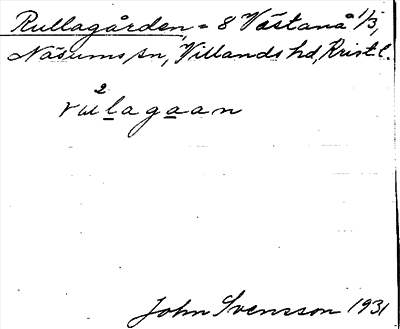 Rullagården, = 8 Västanå 1/3,
Näsums sn, Villands hd, Krist l.
2
rullagaan
John Svensson 1931